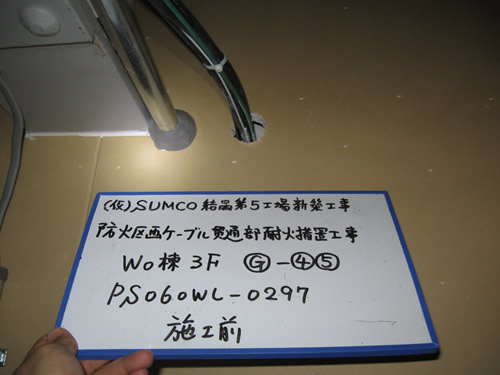 (仮)SUMCO結晶第5工場新築工事
防火区画ケーブル貫通部耐火措置工事
WO棟 3F Ⓖ-④⑤
PS060WL-0297
施工前